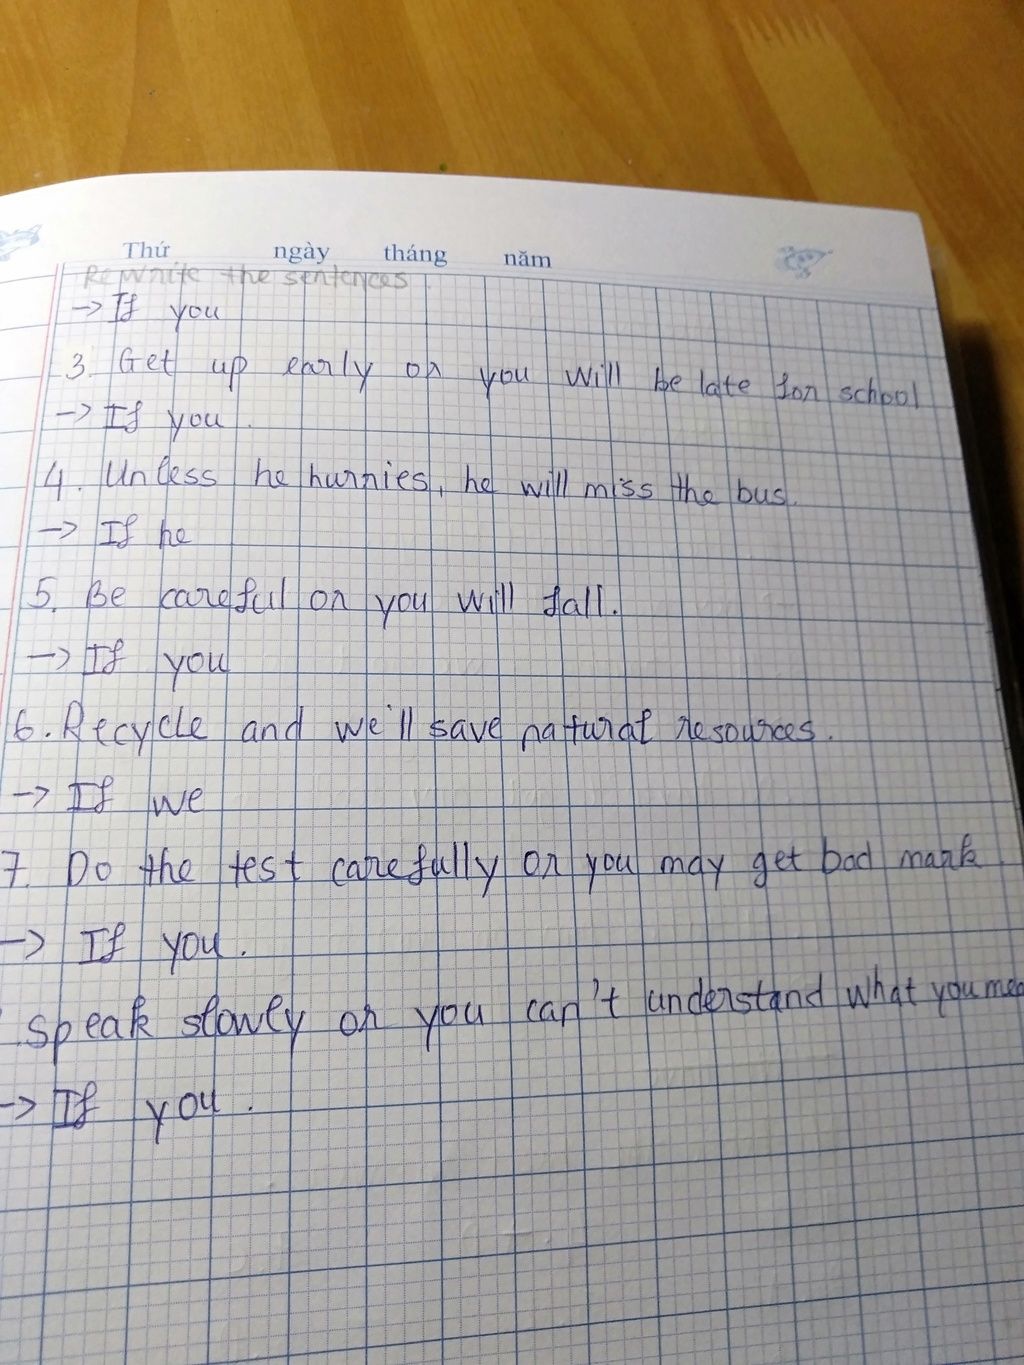 Thứ ngày tháng năm
Rewrite the sentences
-> If you
3. Get up early or you will be late for school
-> If you.
4. Unless he hurries, he will miss the bus.
-> If he
5. Be careful or you will fall.
-> If you
6. Recycle and we'll save natural resources.
-> If we
7. Do the test carefully or you may get bad mark
-> If you.
Speak slowly or you can't understand what you mea
-> If you.